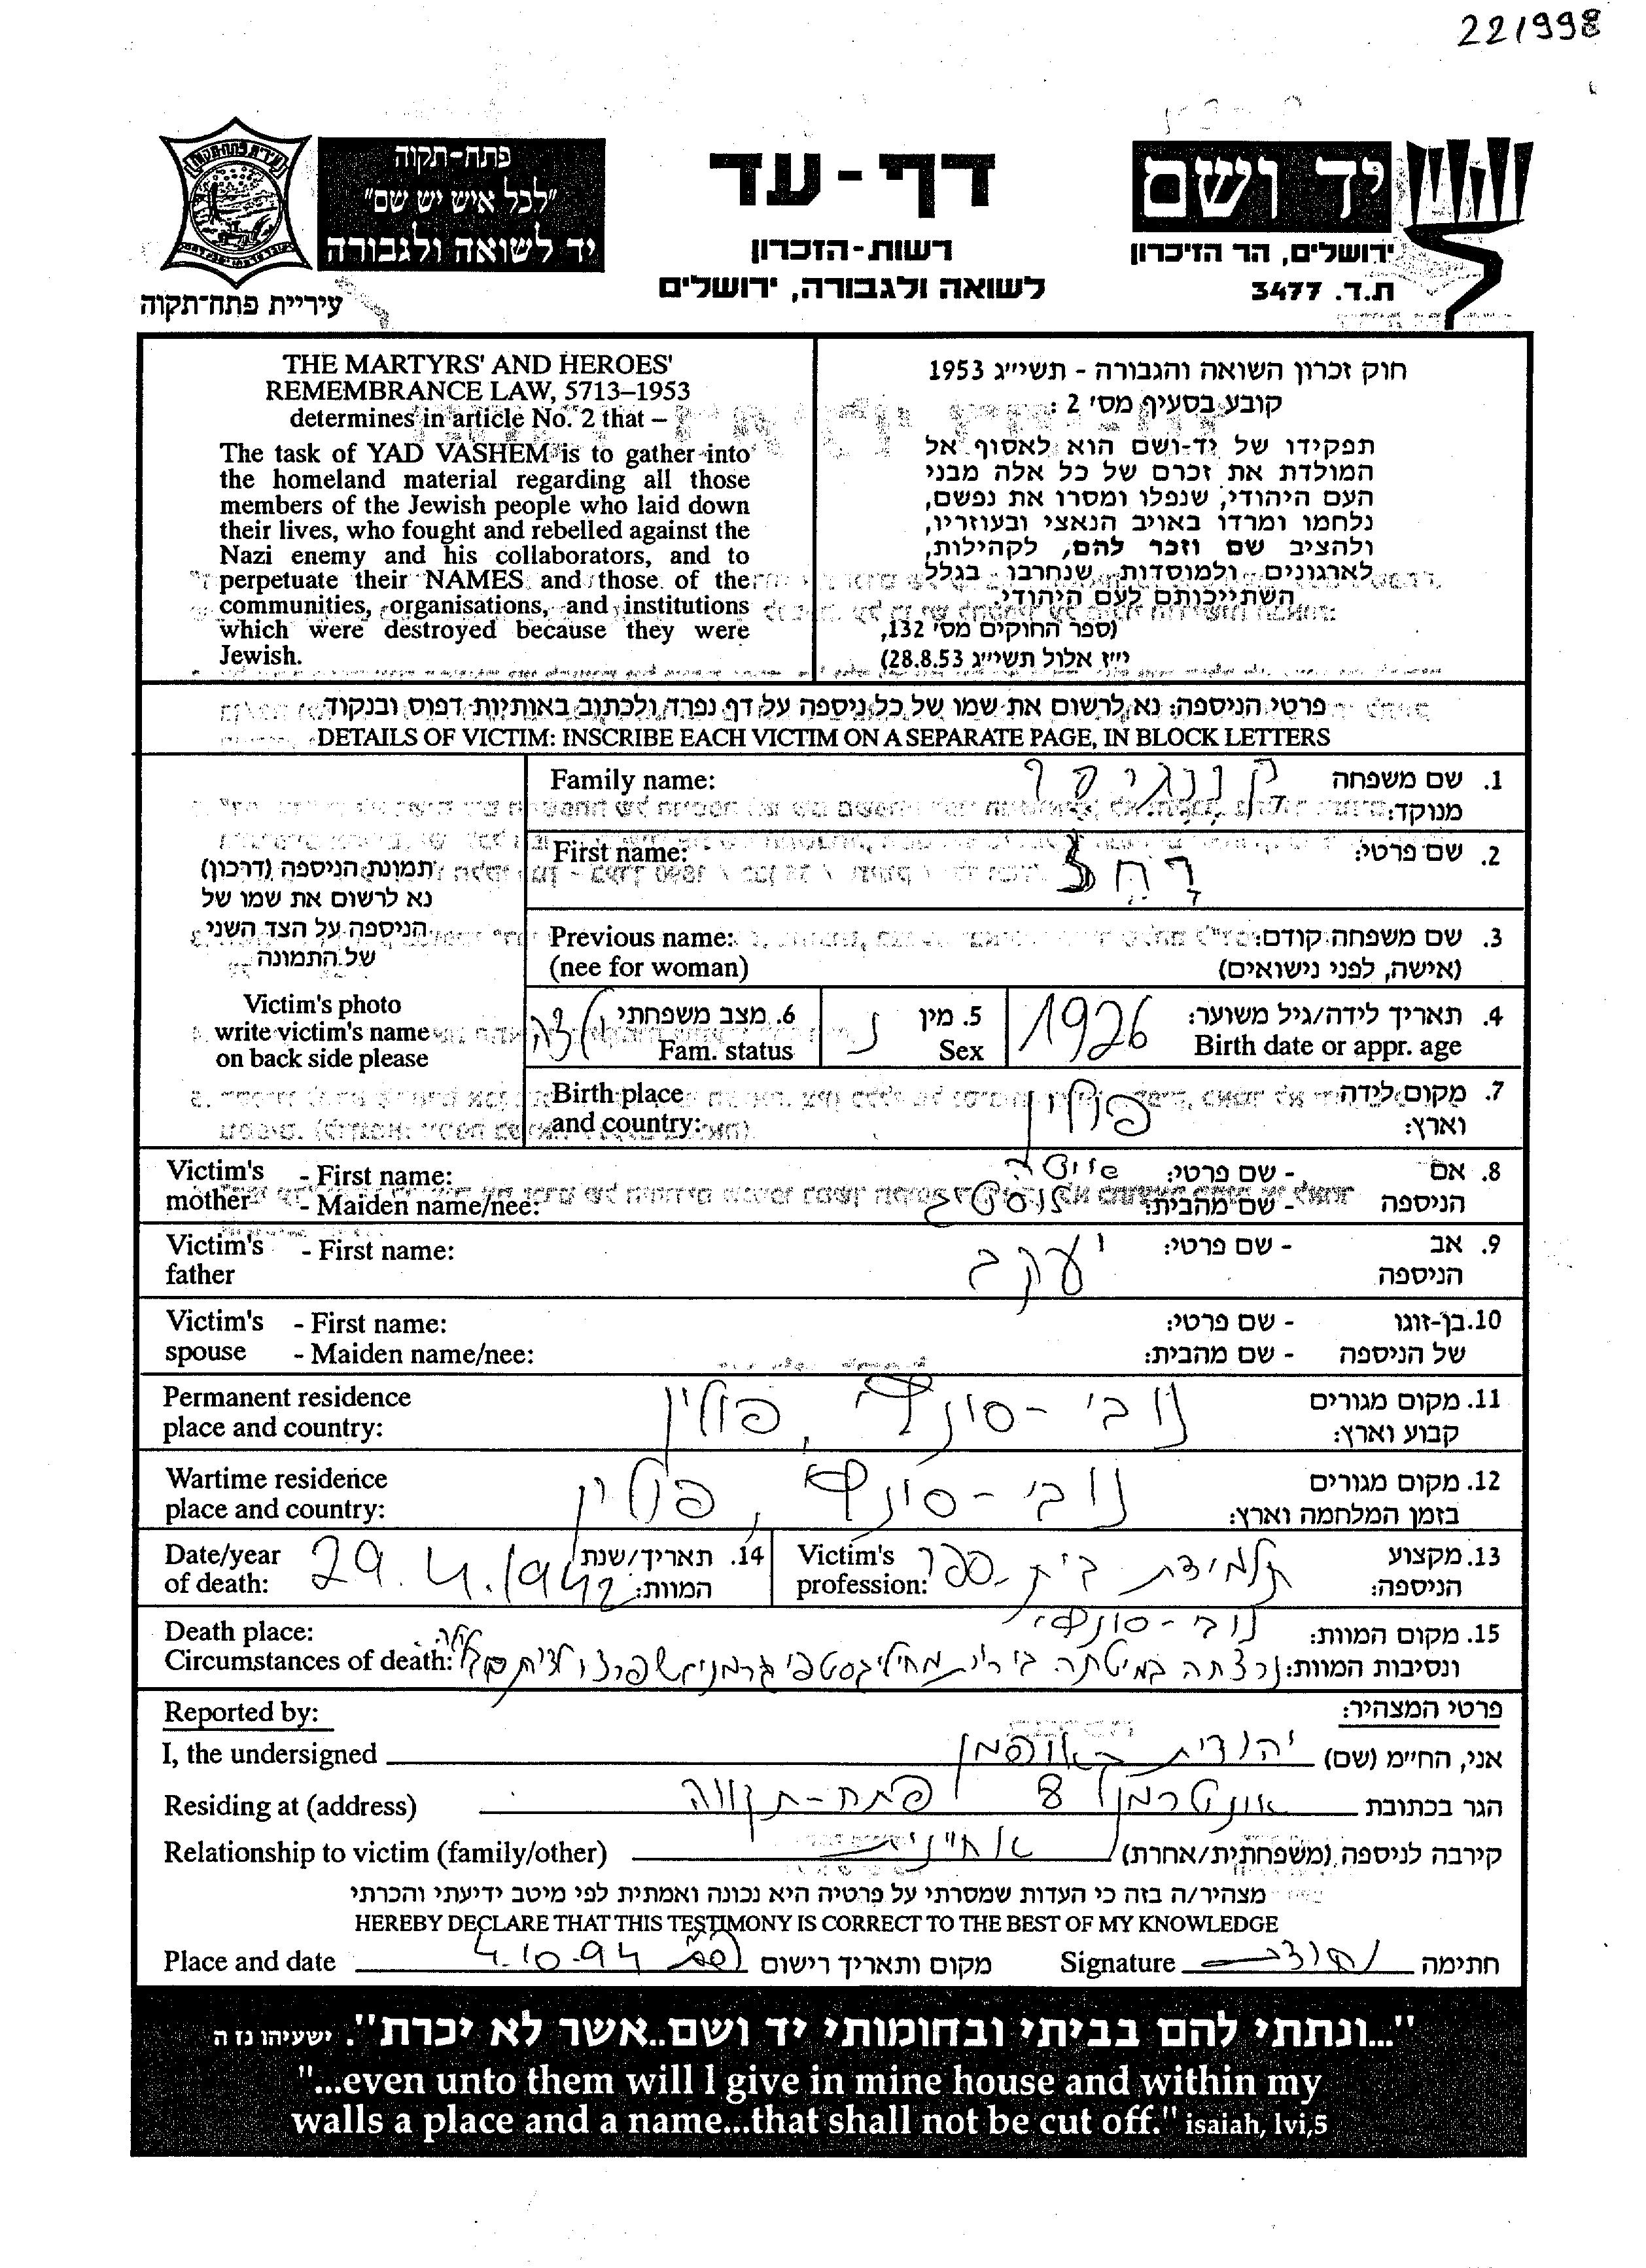 221998
פתח-תקוה
"לכל איש יש שם"
יד לשואה ולגבורה
עיריית פתח-תקוה
דף-עד
רשות-הזכרון
לשואה ולגבורה, ירושלים
יד ושם
ירושלים, הר הזיכרון
ת.ד. 3477
THE MARTYRS' AND HEROES'
REMEMBRANCE LAW, 5713–1953
determines in article No. 2 that –
The task of YAD VASHEM is to gather into
the homeland material regarding all those
members of the Jewish people who laid down
their lives, who fought and rebelled against the
Nazi enemy and his collaborators, and to
perpetuate their NAMES and those of the
communities, organisations, and institutions
which were destroyed because they were
Jewish.
חוק זכרון השואה והגבורה - תשי״ג 1953
קובע בסעיף מס׳ 2 :
תפקידו של יד-ושם הוא לאסוף אל
המולדת את זכרם של כל אלה מבני
העם היהודי, שנפלו ומסרו את נפשם,
נלחמו ומרדו באויב הנאצי ובעוזריו,
ולהציב שם וזכר להם, לקהילות,
לארגונים ולמוסדות שנחרבו בגלל
השתייכותם לעם היהודי.
(ספר החוקים מס׳ 132,
י״ז אלול תשי״ג 28.8.53)
פרטי הניספה: נא לרשום את שמו של כל ניספה על דף נפרד ולכתוב באותיות דפוס ובנקוד
DETAILS OF VICTIM: INSCRIBE EACH VICTIM ON A SEPARATE PAGE, IN BLOCK LETTERS
תמונת הניספה (דרכון)
נא לרשום את שמו של
הניספה על הצד השני
של התמונה
Victim's photo
write victim's name
on back side please
1. שם משפחה
מנוקד:
Family name:
2. שם פרטי: רחל
First name:
3. שם משפחה קודם:
(אישה, לפני נישואים)
Previous name:
(nee for woman)
4. תאריך לידה/גיל משוער: 1926
Birth date or appr. age
5. מין נ
Sex
6. מצב משפחתי ילדה
Fam. status
7. מקום לידה
וארץ: פולין
Birth place
and country:
8. אם - שם פרטי:
הניספה - שם מהבית:
Victim's - First name:
mother - Maiden name/nee:
9. אב - שם פרטי: יעקב
הניספה:
Victim's - First name:
father
10. בן-זוגו - שם פרטי:
של הניספה - שם מהבית:
Victim's - First name:
spouse - Maiden name/nee:
11. מקום מגורים
קבוע וארץ: נובי-סונץ, פולין
Permanent residence
place and country:
12. מקום מגורים
בזמן המלחמה וארץ: נובי-סונץ, פולין
Wartime residence
place and country:
13. מקצוע
הניספה: תלמידת בית-ספר
Victim's
profession:
14. תאריך/שנת
המוות: 29.4.1942
Date/year
of death:
15. מקום המוות: נובי-סונץ
ונסיבות המוות: נרצחה במיטתה
Death place:
Circumstances of death:
פרטי המצהיר:
Reported by:
אני, החי״מ (שם) יהודית
I, the undersigned
הגר בכתובת 8 פתח-תקווה
Residing at (address)
קירבה לניספה (משפחתית/אחרת) אחיינית
Relationship to victim (family/other)
מצהיר/ה בזה כי העדות שמסרתי על פרטיה היא נכונה ואמתית לפי מיטב ידיעתי והכרתי
HEREBY DECLARE THAT THIS TESTIMONY IS CORRECT TO THE BEST OF MY KNOWLEDGE
Place and date 4.10.94 מקום ותאריך רישום Signature חתימה
"...ונתתי להם בביתי ובחומותי יד ושם..אשר לא יכרת". ישעיהו נז ה
"...even unto them will I give in mine house and within my
walls a place and a name...that shall not be cut off." isaiah, lvi,5